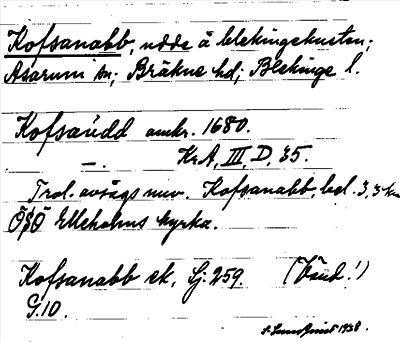 Kofsanabb, udde å blekingekusten;
Asarums sn; Bräkne hd; Blekinge l.
Kofsaudd omkr. 1680.
—. Kr.A, III, D, 35.
Trol. avsågs nuv. Kofsanabb, bel. 3,3 km
ÖSÖ Elleholms kyrka.
Kofsanabb ek, Gj. 259. (Vänd!)
G.10.
1938.